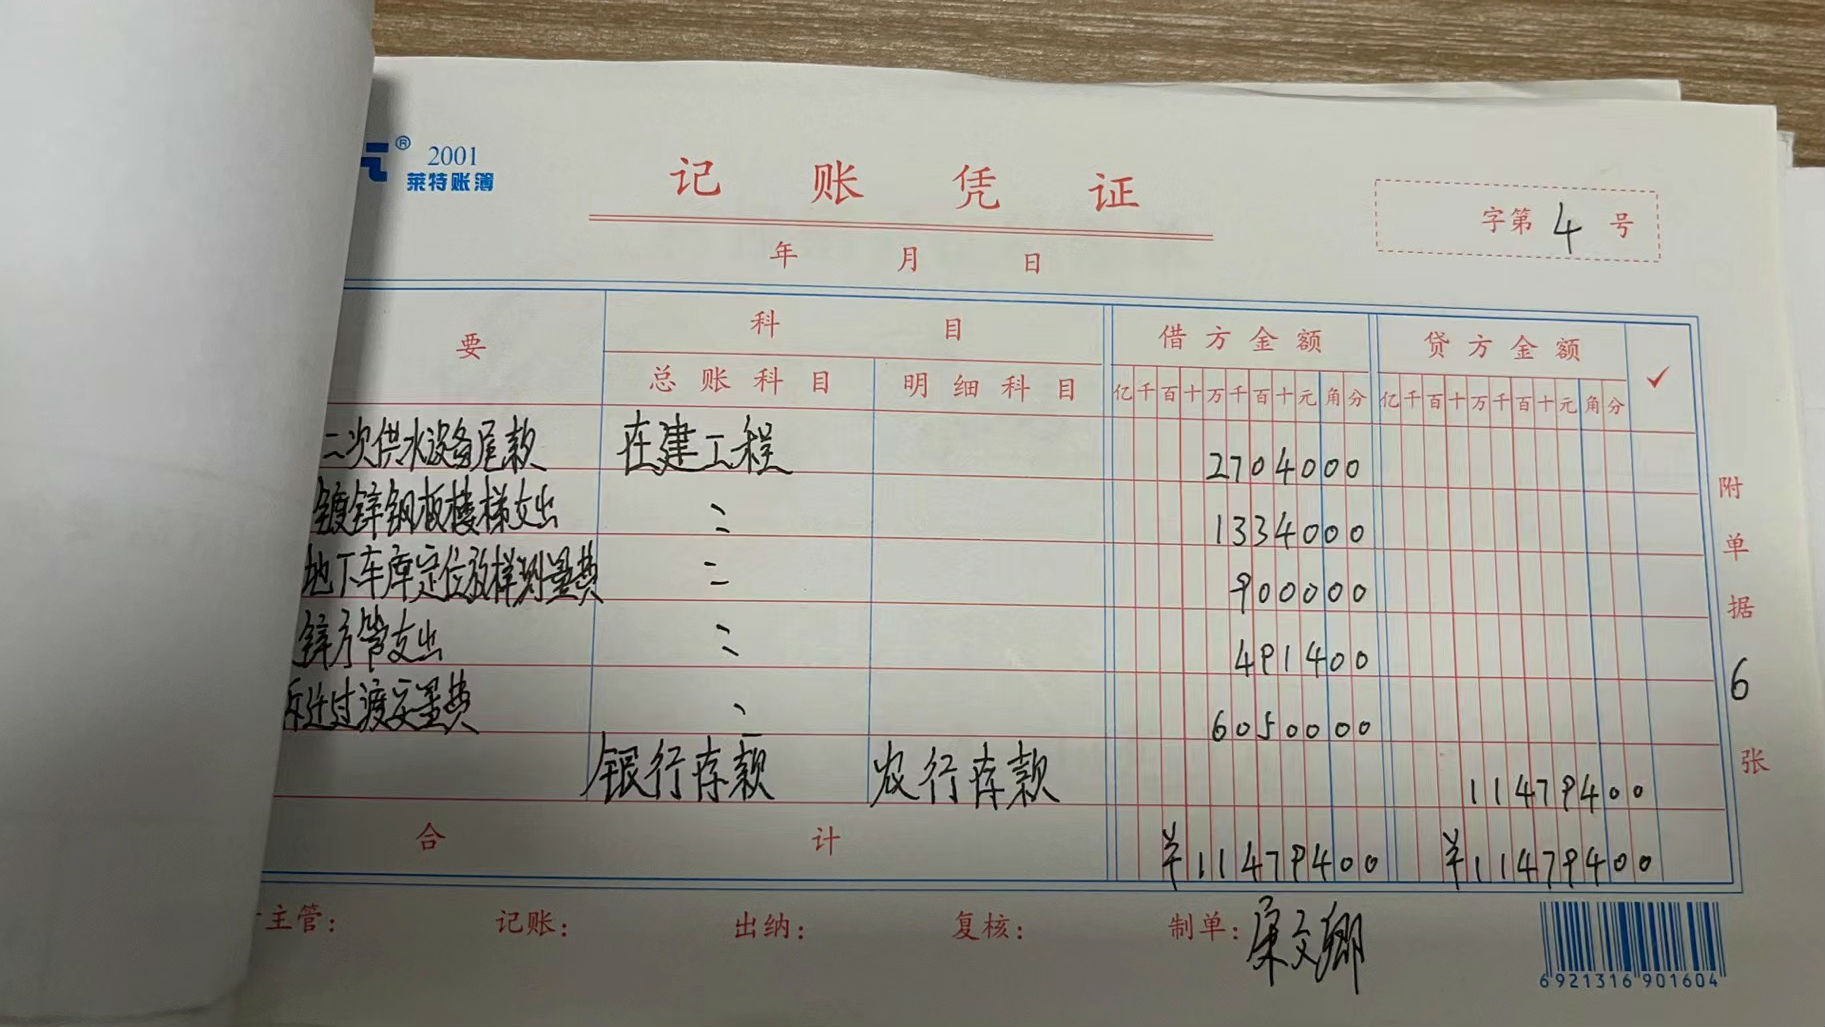 ® 2001
莱特账簿
记账凭证
年 月 日
字第 4 号
要 科目 借方金额 贷方金额 ✓
总账科目 明细科目 亿千百十万千百十元角分 亿千百十万千百十元角分
二次供水设备尾款 在建工程 2704000
镀锌钢板楼梯支出 〃 1334000
地下车库定位放样测量费 〃 900000
锌方管支出 〃 491400
拆迁过渡安置费 〃 6050000
银行存款 农行存款 11479400
合计 ¥11479400 ¥11479400
附单据 6 张
主管: 记账: 出纳: 复核: 制单:
6921316901604